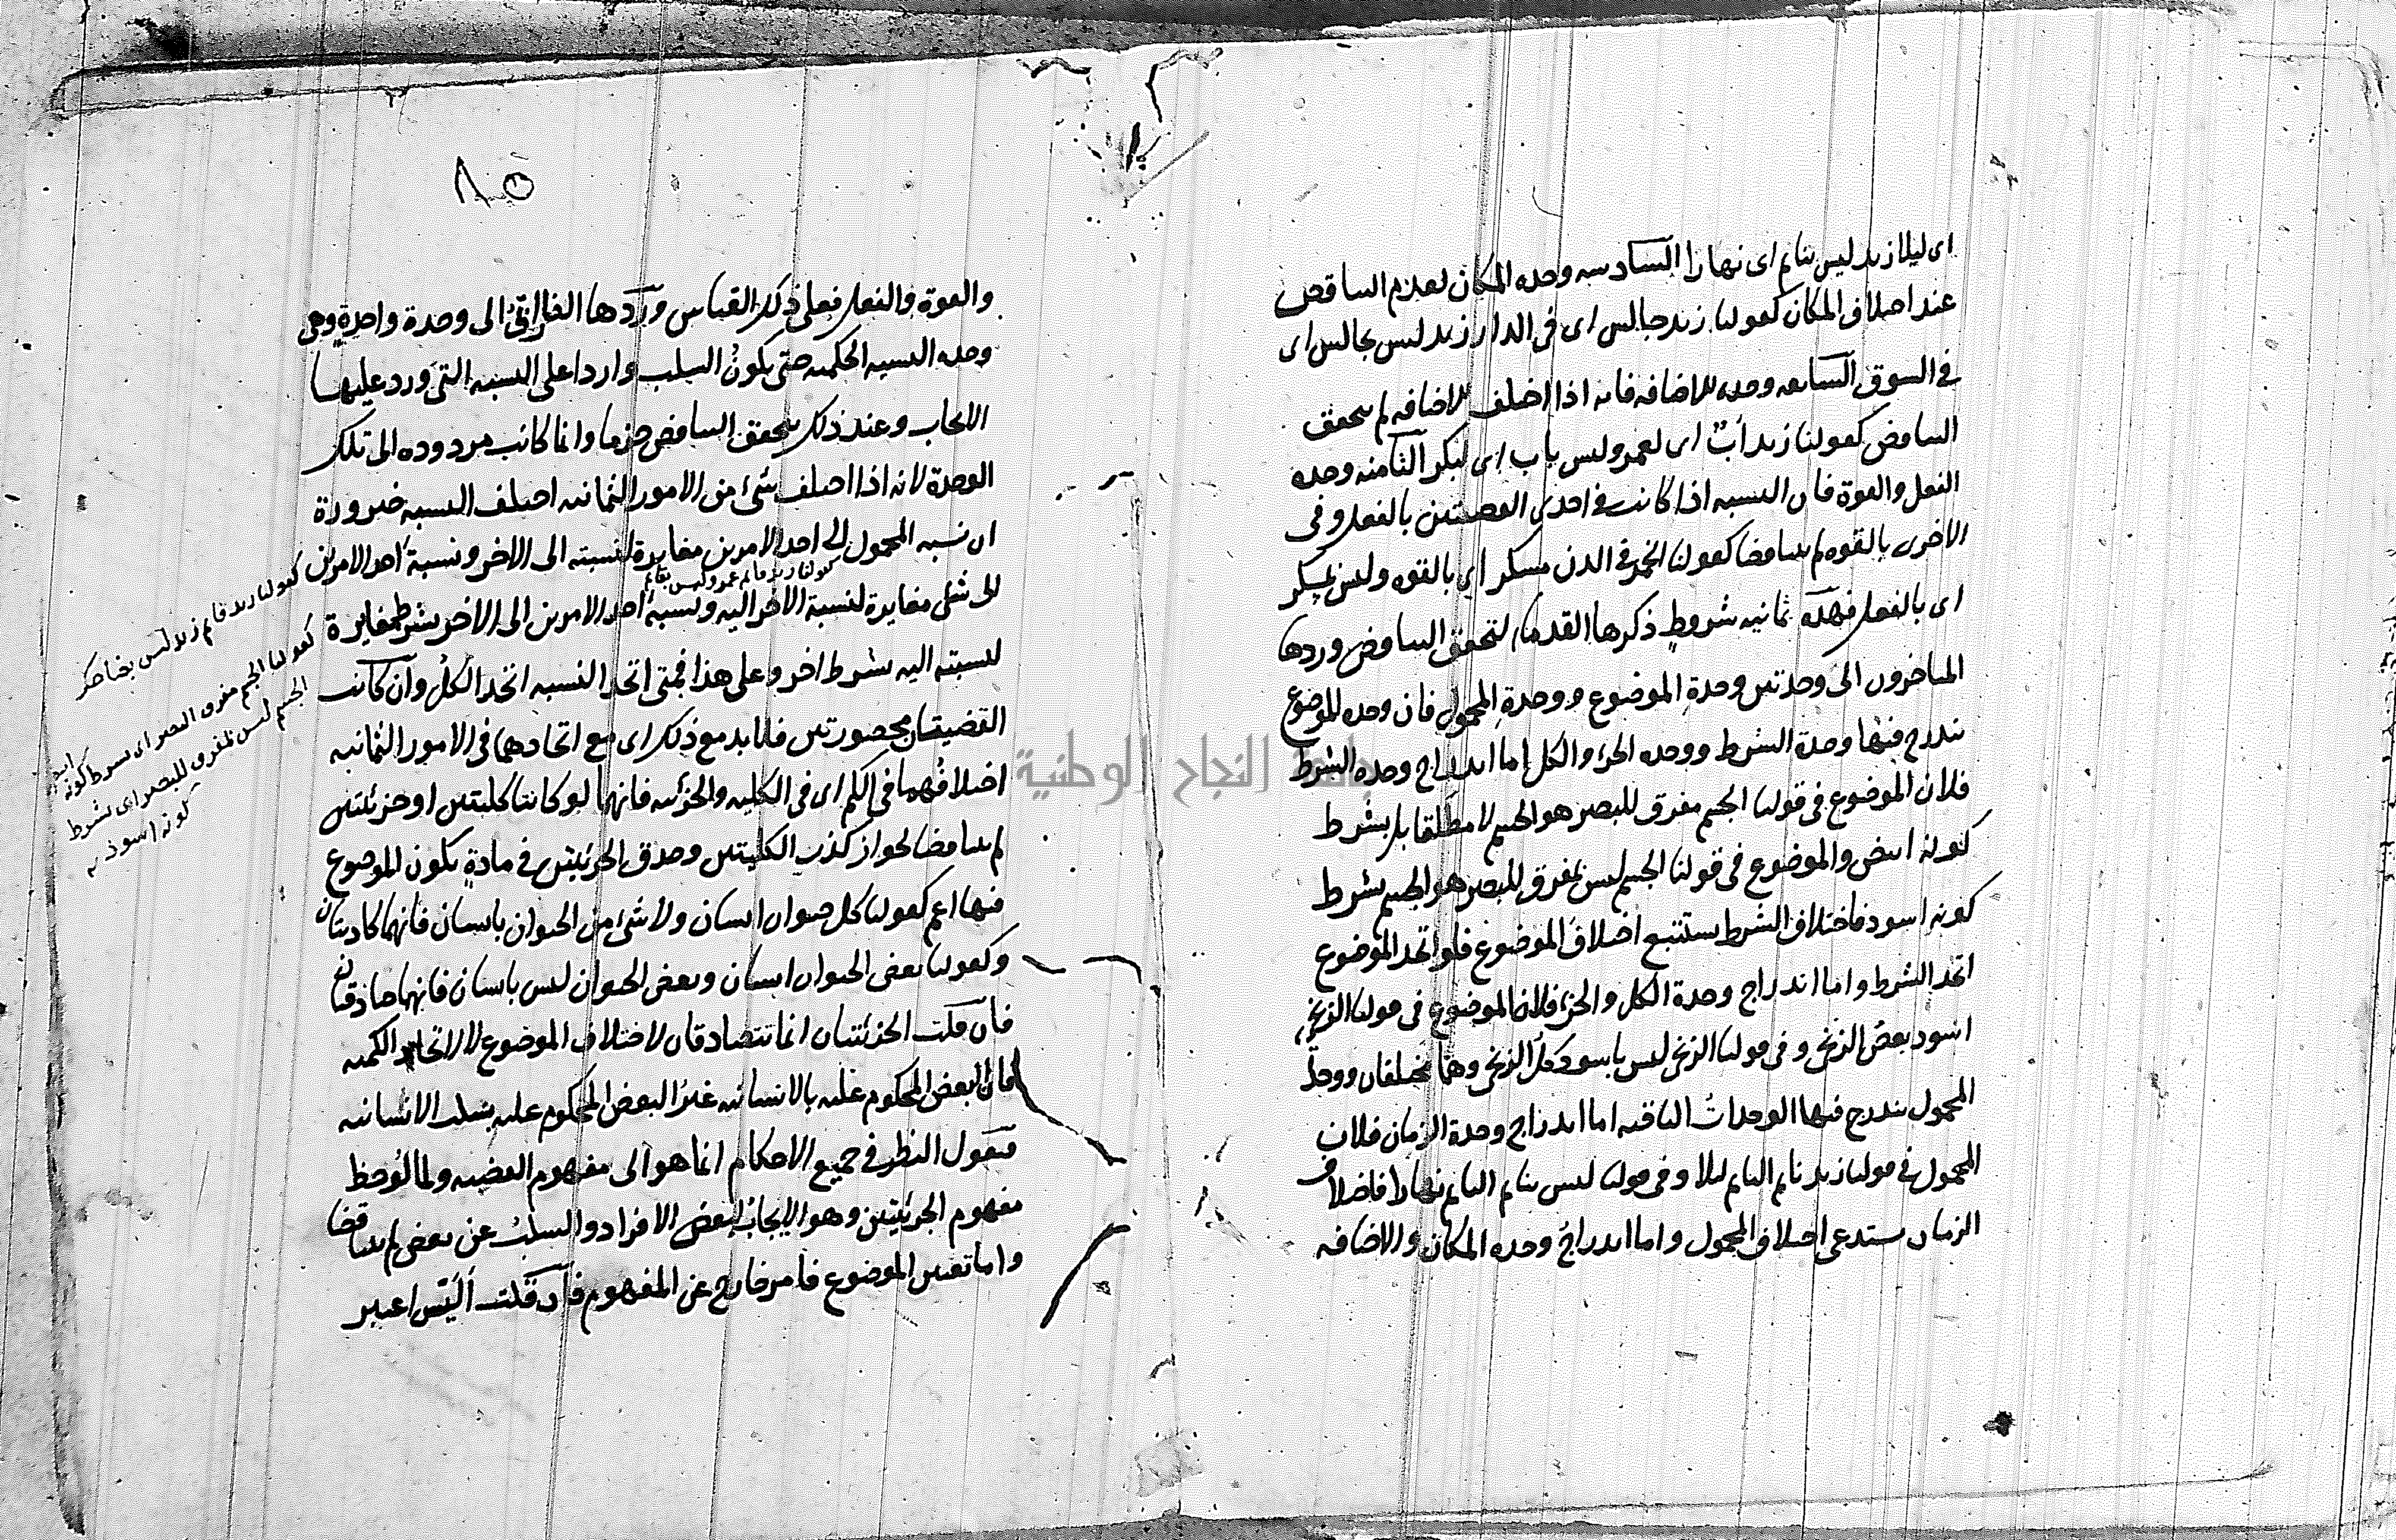 اى ليلا زيد ليس بنايم اى نهارا السادسه وحده المكان لعدم الساقض
عند اختلاف المكان كقولنا زيد جالس اى فى الدار زيد ليس بجالس اى
فى السوق السابعه وحده الاضافه فانه اذا اختلف الاضافه لم يتحقق
التناقض كقولنا زيد اب اى لعمرو ليس باب اى لبكر الثامنه وحده
الفعل والقوة فان النسبه اذا كانت فى احدى القضيتين بالفعل وفى
الاخرى بالقوه لم يتناقضا كقولنا الخمر فى الدن مسكر اى بالقوه وليس بمسكر
اى بالفعل فهذه ثمانيه شروط ذكرها القدماء لتحقق التناقض وردها
المتاخرون الى وحدتين وحدة الموضوع ووحدة المحمول فان وحده الموضوع
يندرج فيها وحدة الشرط ووحده الجزء والكل اما اندراج وحده الشرط
فلان الموضوع فى قولنا الجسم مفرق للبصر هو الجسم لا مطلقا بل بشرط
كونه ابيض والموضوع فى قولنا الجسم ليس بمفرق للبصر هو الجسم بشرط
كونه اسود فاختلاف الشرط يستتبع اختلاف الموضوع فلو اتحد الموضوع
اتحد الشرط واما اندراج وحدة الكل والجزء فلان الموضوع فى قولنا الزنجى
اسود بعض الزنجى وفى قولنا الزنجى ليس باسود كل الزنجى وهما مختلفان ووحدة
المحمول يندرج فيها الوحدات الباقيه اما اندراج وحدة الزمان فلان
المحمول فى قولنا زيد نايم النايم ليلا وفى قولنا ليس بنايم النايم نهارا فاختلاف
الزمان يستدعى اختلاف المحمول واما اندراج وحده المكان والاضافه
٨٥
والقوة والفعل فعلى ذلك القياس وردها الفارابى الى وحدة واحدة وهى
وحده النسبه الحكميه حتى يكون السلب واردا على النسبه التى ورد عليها
الايجاب وعند ذلك يتحقق التناقض جزما وانما كانت مردوده الى تلك
الوحدة لانه اذا اختلف شئ من الامور الثمانيه اختلف النسبه ضرورة
ان نسبه المحمول الى احد الامرين مغايرة لنسبته الى الاخر ونسبة احد الامرين
كقولنا زيد قايم عمرو ليس بقايم
الى شئ مغايرة لنسبة الاخر اليه ونسبة احد الامرين الى الاخر بشرط مغايرة
لنسبته اليه بشرط اخر وعلى هذا فمتى اتحد النسبه اتحد الكل وان كانت
القضيتان محصورتين فلا بد مع ذلك اى مع اتحادهما فى الامور الثمانيه
اختلافهما فى الكم اى فى الكليه والجزئيه فانهما لو كانتا كليتين او جزئيتين
لم يتناقضا لجواز كذب الكليتين وصدق الجزئيتين فى مادة يكون الموضوع
فيها اعم كقولنا كل حيوان انسان ولا شئ من الحيوان بانسان فانهما كاذبتان
وكقولنا بعض الحيوان انسان وبعض الحيوان ليس بانسان فانهما صادقتان
فان قلت الجزئيتان انما تتصادقان لاختلاف الموضوع لا لاتحاد الكميه
فان البعض المحكوم عليه بالانسانيه غير البعض المحكوم عليه بسلب الانسانيه
فنقول النظر فى جميع الاحكام انما هو الى مفهوم القضيه ولما لوحظ
مفهوم الجزئيتين وهو الايجاب لبعض الافراد والسلب عن بعض لم يتناقضا
واما تعيين الموضوع فامر خارج عن المفهوم فان قلت اليس اعتبر
كقولنا زيد قايم زيد ليس بضاحك
كقولنا الجسم مفرق للبصر اى بشرط كونه ابيض
الجسم ليس بمفرق للبصر اى بشرط
كونه اسود
جامعة النجاح الوطنية